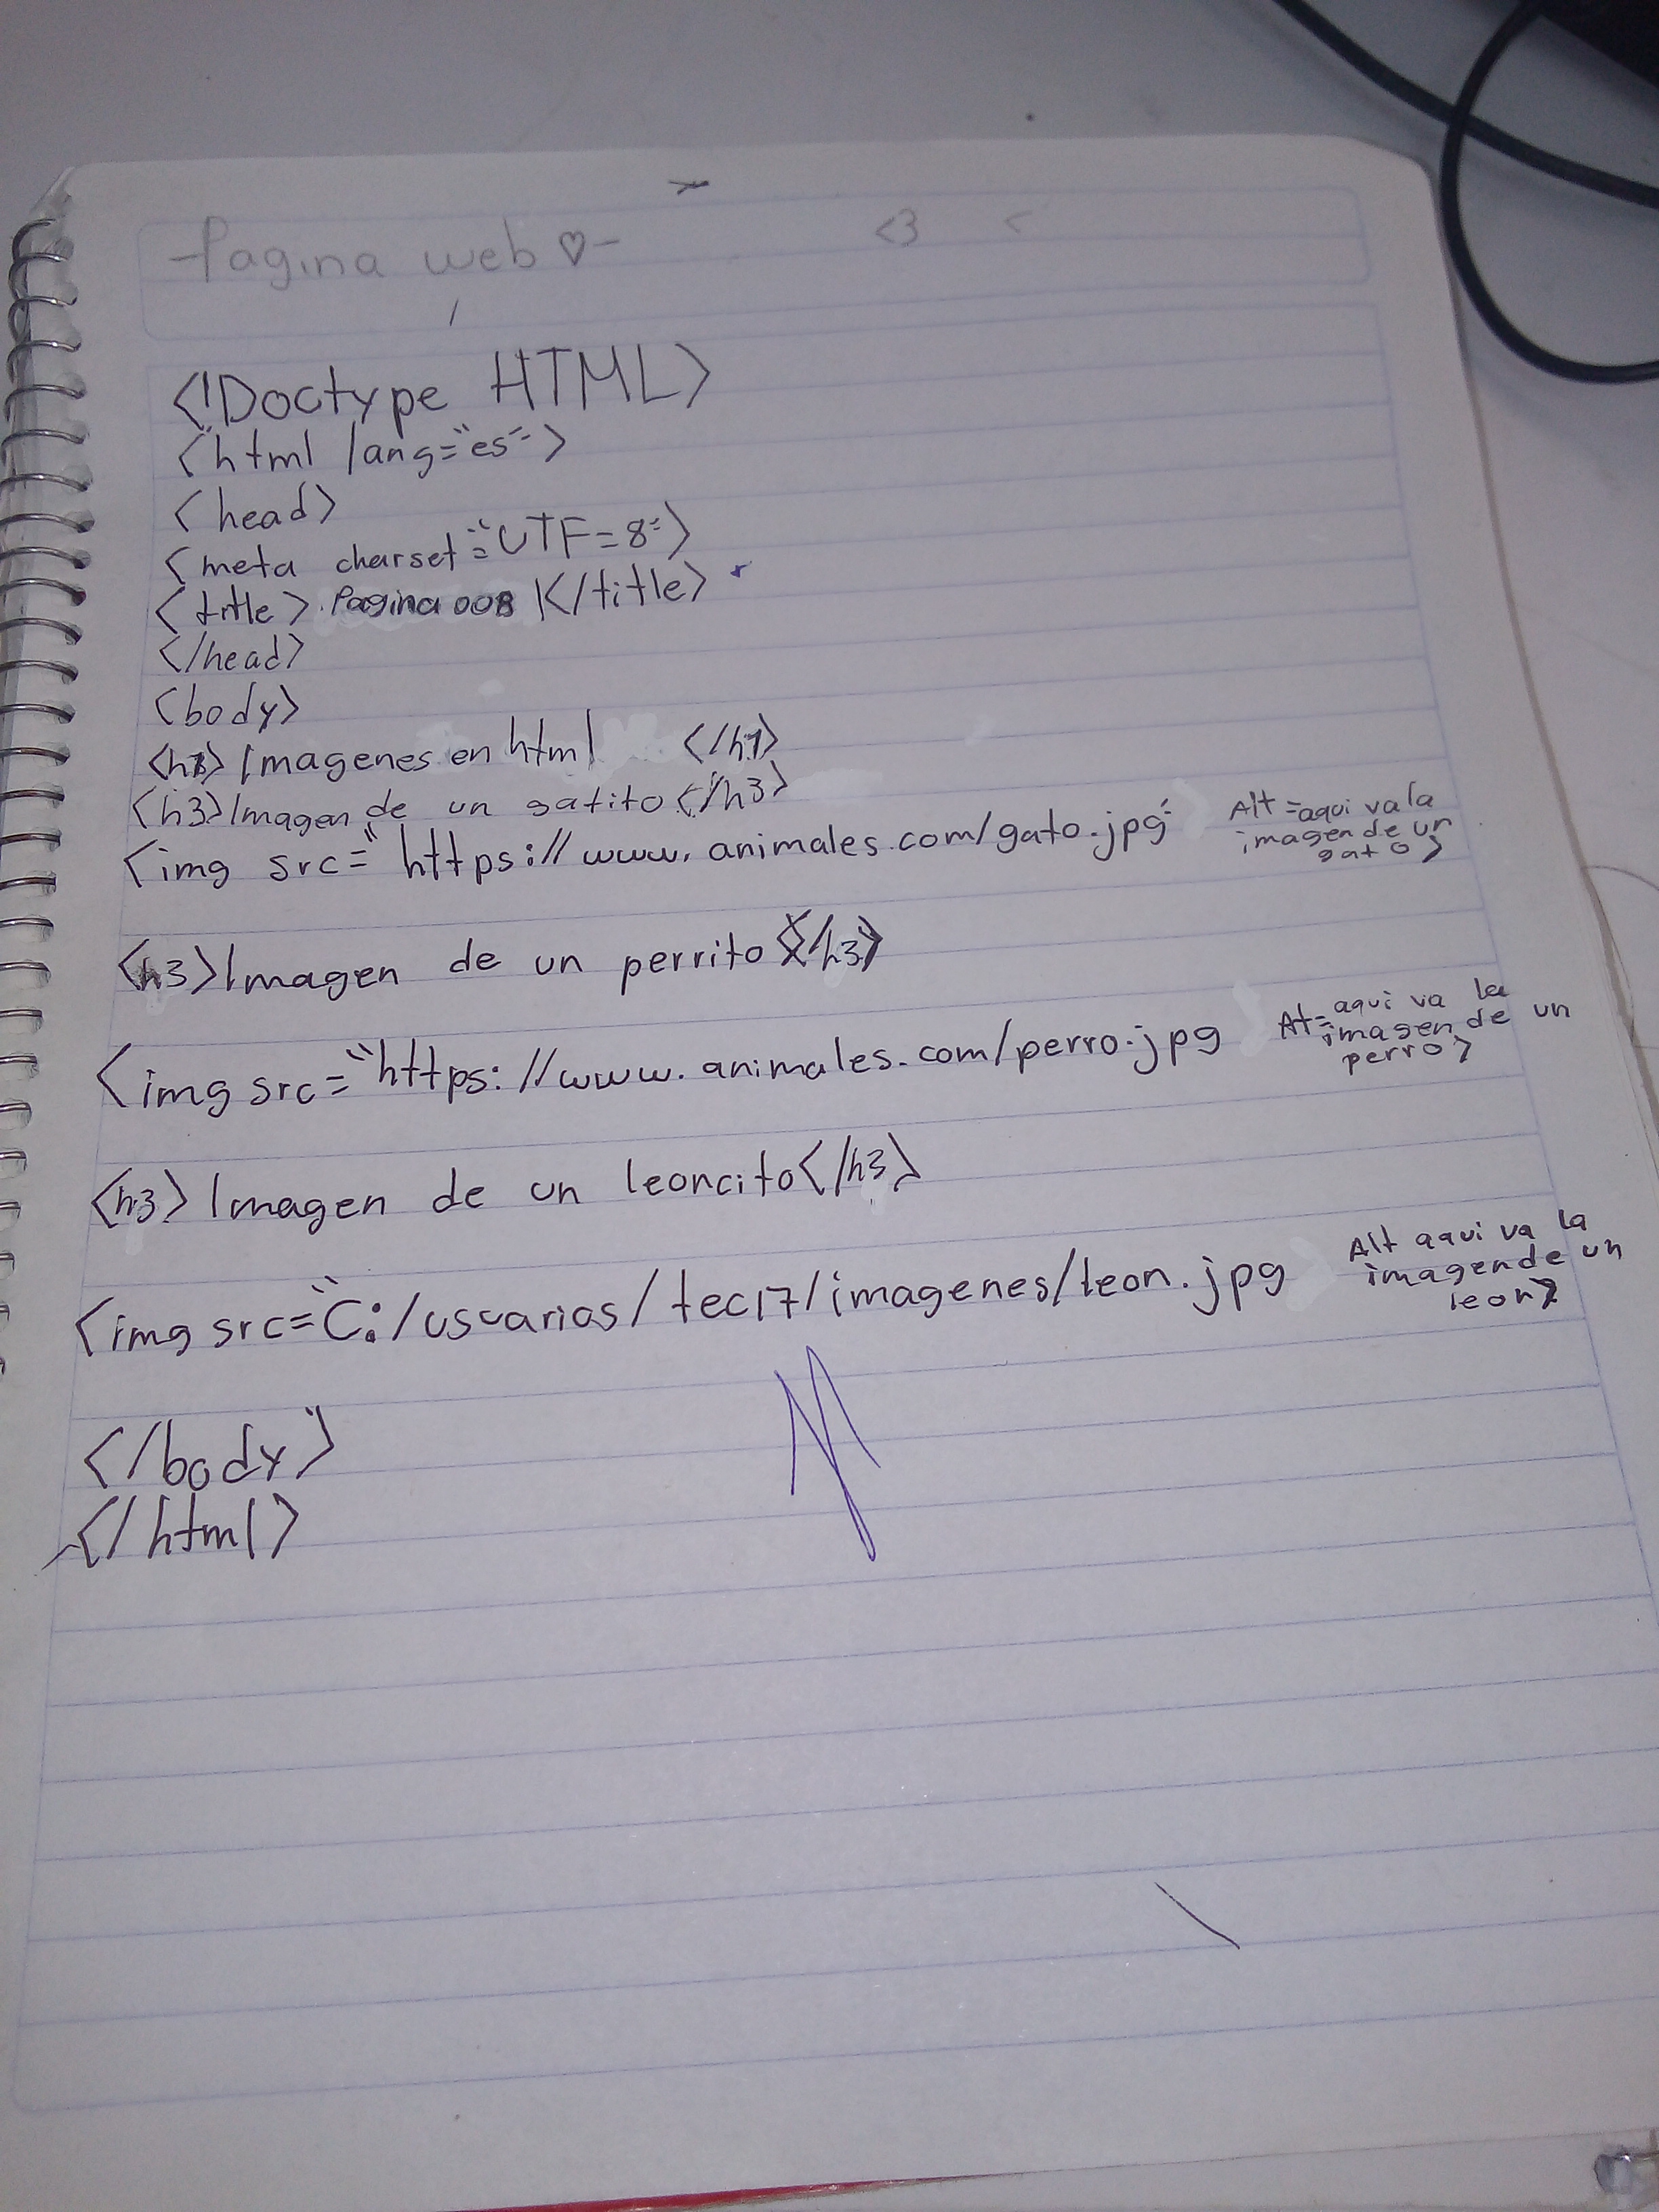 -Pagina web ♡- <3 <
<!Doctype HTML>
<html lang="es">
<head>
<meta charset="UTF=8">
<title> Pagina 008 </title>
</head>
<body>
<h1> Imagenes en html </h1>
<h3>Imagen de un gatito</h3>
<img src="https://www.animales.com/gato.jpg" Alt=aqui va la
imagen de un
gato>
<h3>Imagen de un perrito</h3>
<img src="https://www.animales.com/perro.jpg At=aqui va la
imagen de un
perro>
<h3> Imagen de un leoncito</h3>
<img src="C:/usuarios/tec17/imagenes/leon.jpg Alt aqui va la
imagen de un
leon>
</body>
</html>